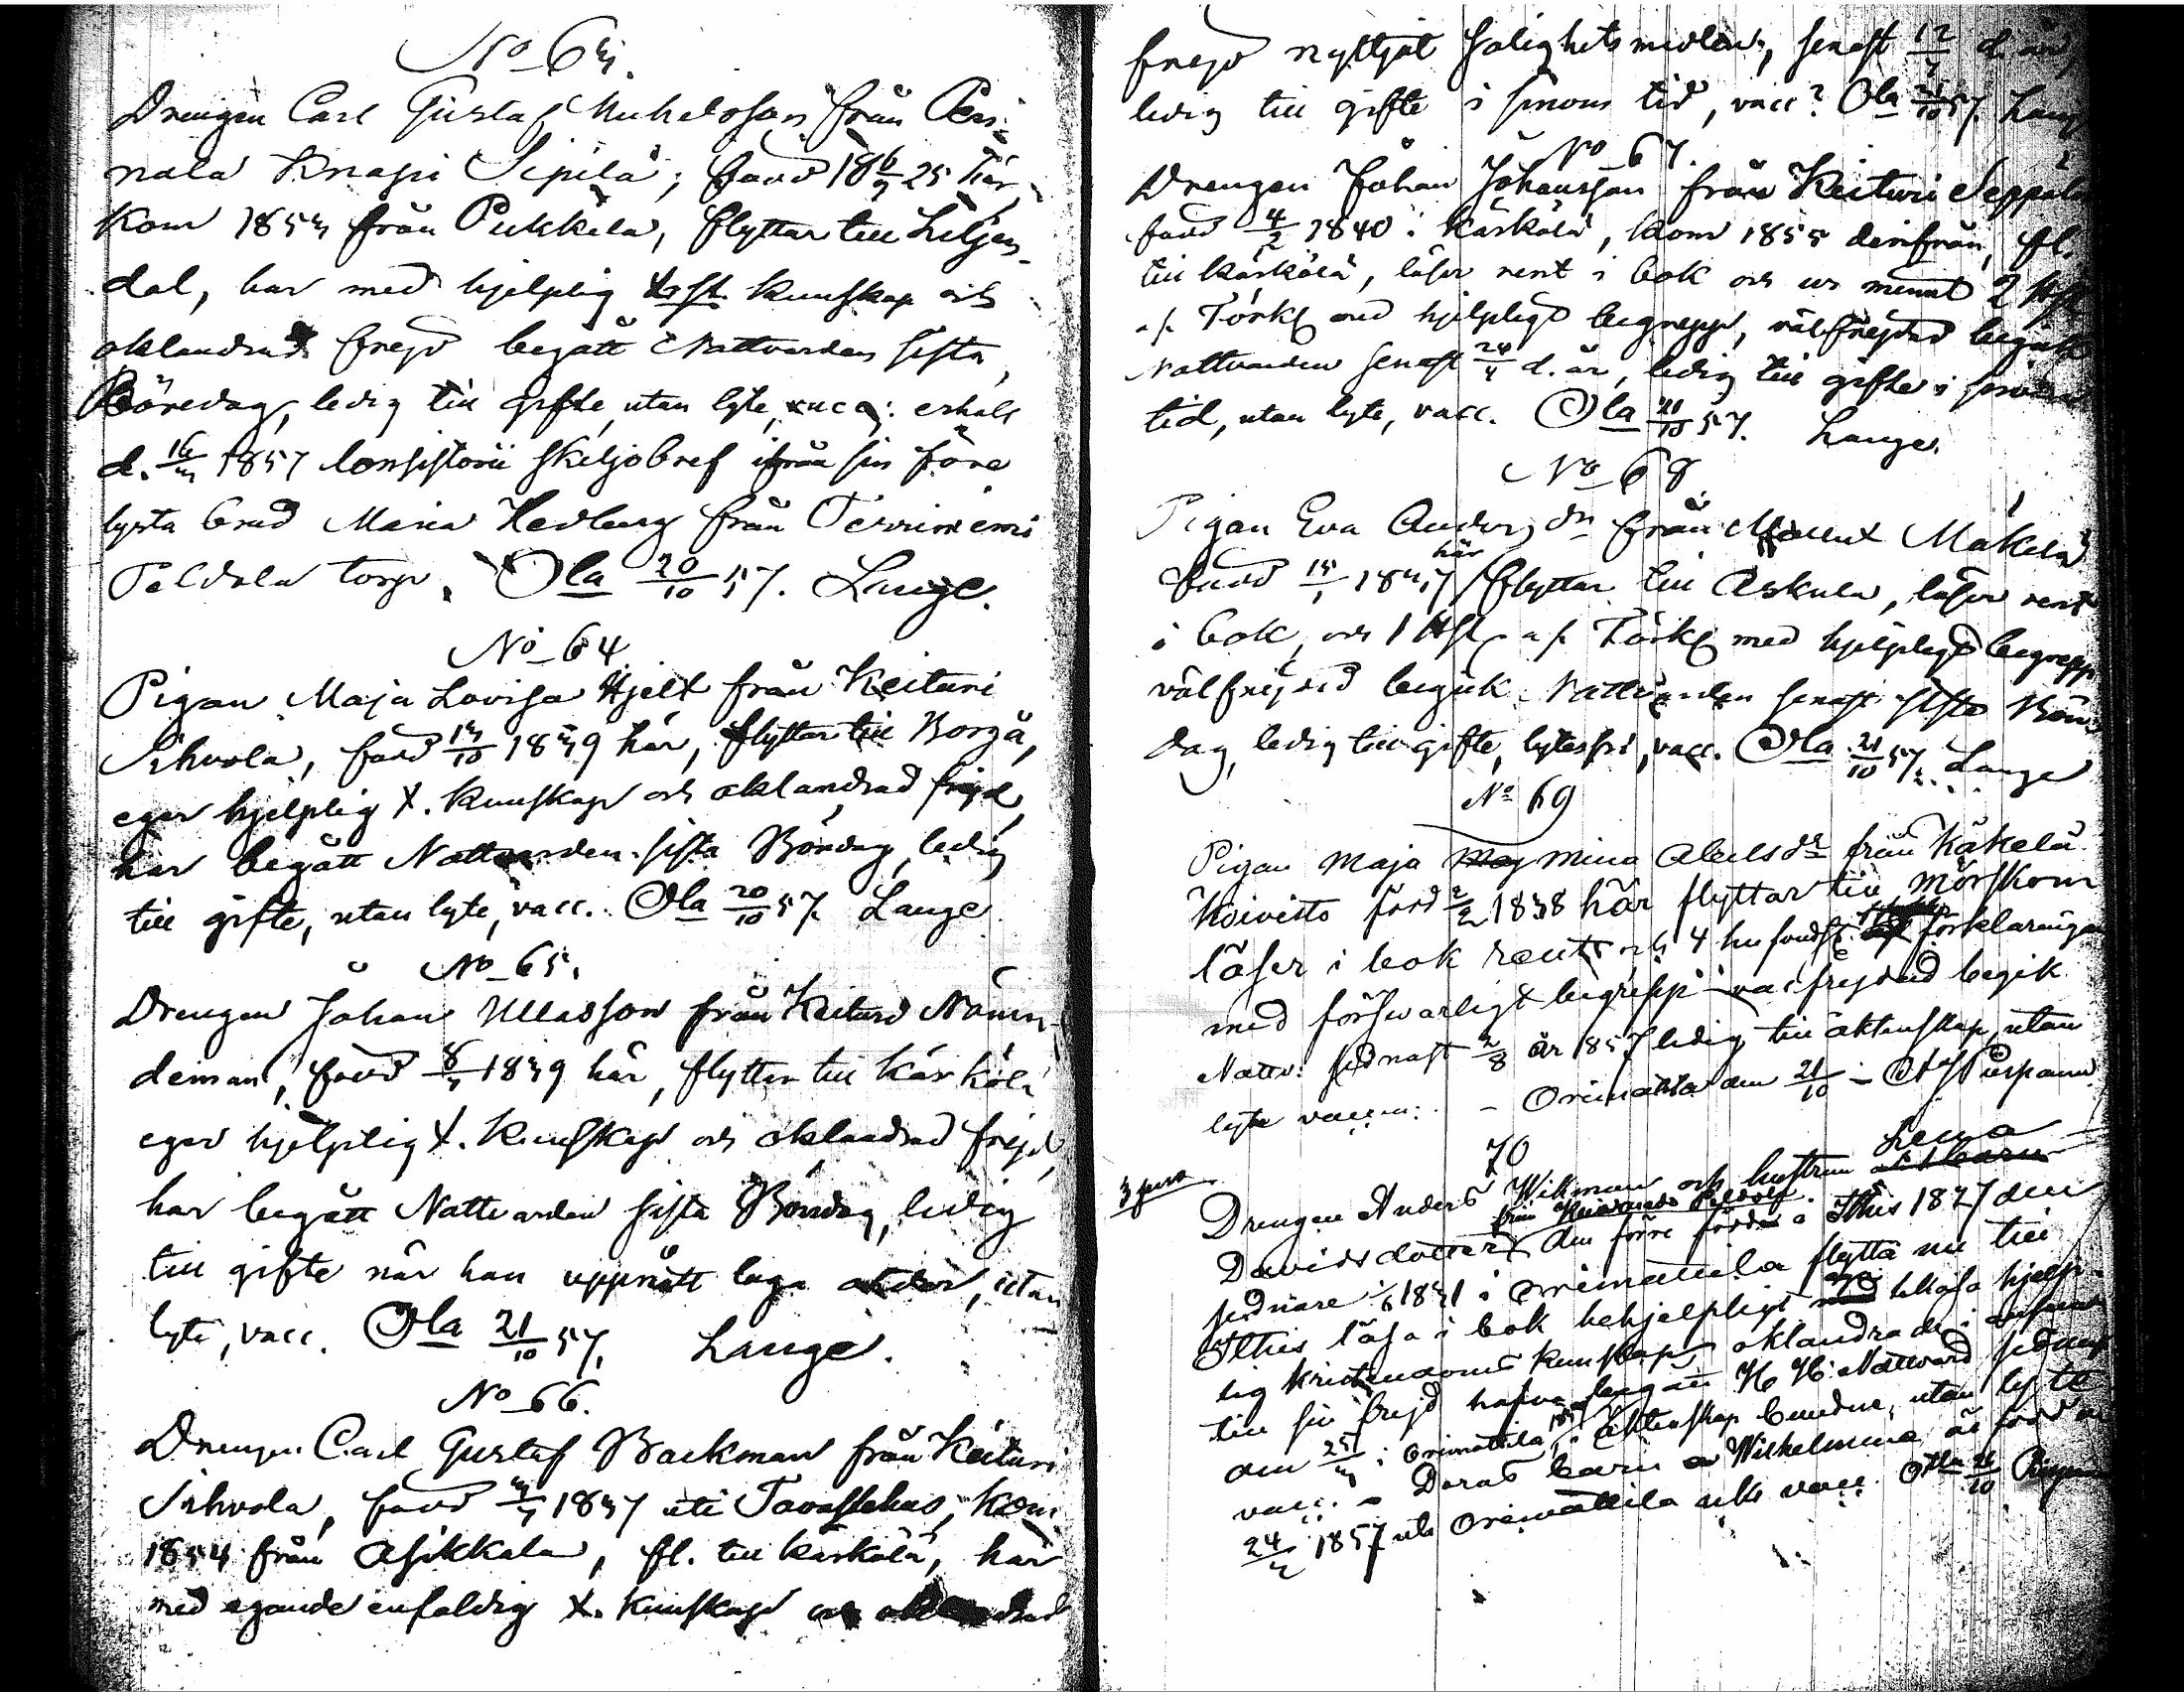 No 63.
Drengen Carl Gustaf Michelsson från Pen-
nala Knapi Sipilä; född 18 6/9 25 här,
kom 1853 från Pukkila, flyttar till Liljen-
dal, har med hjelplig kunskap och
oklandrad frejd begått Nattvarden sista
Böndag, ledig till gifte, utan lyte, vacc: erhöll
d. 16/3 1857 Consistorii skiljobref ifrån sin före
lysta brud Maria Hedberg från Terriniemi
Peldola torp. Ola 20/10 57. Lange.
No 64
Pigan Maja Lovisa Hjelt från Keituri
Sihvola, född 13/10 1839 här, flyttar till Borgå,
eger hjelplig X. kunskap och oklandrad frejd,
har begått Nattvarden sista Böndag, ledig
till gifte, utan lyte, vacc. Ola 20/10 57. Lange
No 65.
Drengen Johan Ullasson från Keituri Nämn-
deman, född 8/7 1839 här, flyttar till Kärkölä
eger hjelplig X. kunskap och oklandrad frejd,
har begått Nattvarden sista Böndag, ledig
till gifte när han uppnått laga ålder, utan
lyte, vacc. Ola 21/10 57. Lange.
No 66.
Drengen Carl Gustaf Backman från Keituri
Sihvola, född 1837 uti Tavastehus, kom
1854 från Asikkala, fl. till Kärkölä, har
med egande enfaldig X. kunskap och oklandrad
frejd nyttjat salighetsmedlen, senast d. år,
ledig till gifte i sinom tid, vacc? Ola 21/10 57. Lange
No 67.
Drengen Johan Johansson från Keituri Seppälä
född 4/2 1840 i Kärkölä, kom 1855 derifrån, fl.
till Kärkölä, läser rent i bok och ur minnet 2 Hst
af Törk med hjelpligt begrepp, välfrejdad begick
Nattvarden senast 24/4 d. år, ledig till gifte i sinom
tid, utan lyte, vacc. Ola 21/10 57. Lange.
No 68
Pigan Eva Andersdr från Mäkelä
född 15/1 1837 här flyttar till Askula, läser rent
i bok, och 1 Hst af Törk med hjelpligt begrepp
välfrejdad begick Nattvarden senast sista Bön
dag, ledig till gifte, lytesfri, vacc. Ola 21/10 57. Lange
No 69
Pigan Maja Mina Abelsdr från Käkelä
Koivisto född 2/2 1838 här flyttar till Mörskom
läser i bok rent och 4 hufvudst. förklaringen
med försvarligt begrepp välfrejdad begik
Nattv: sednast år 1857 ledig till äktenskap, utan
lyte vaccin: - Orimattila den 21/10
70
3 pers
Drengen Anders Wikman och hustrun Lena
Davidsdotter från den förre född i Ithis 1827 den
sednare 1831 i Orimattila flytta nu till
Ithis läsa i bok hjelpligt ega hjelp-
lig kristendoms kunskap, oklandrade i
till sin frejd hafva begått H. H. Nattvard sednast
den 25/3 i Orimattila, i äktenskap bundne, utan lyte
vacc. - Deras barn Wilhelmina är född den
24/2 1857 uti Orimattila icke vacc. Olla 26/10